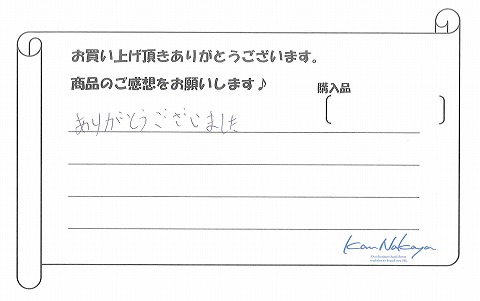 お買い上げ頂きありがとうございます。
商品のご感想をお願いします♪
購入品
ありがとうございました
Kan Nakaya